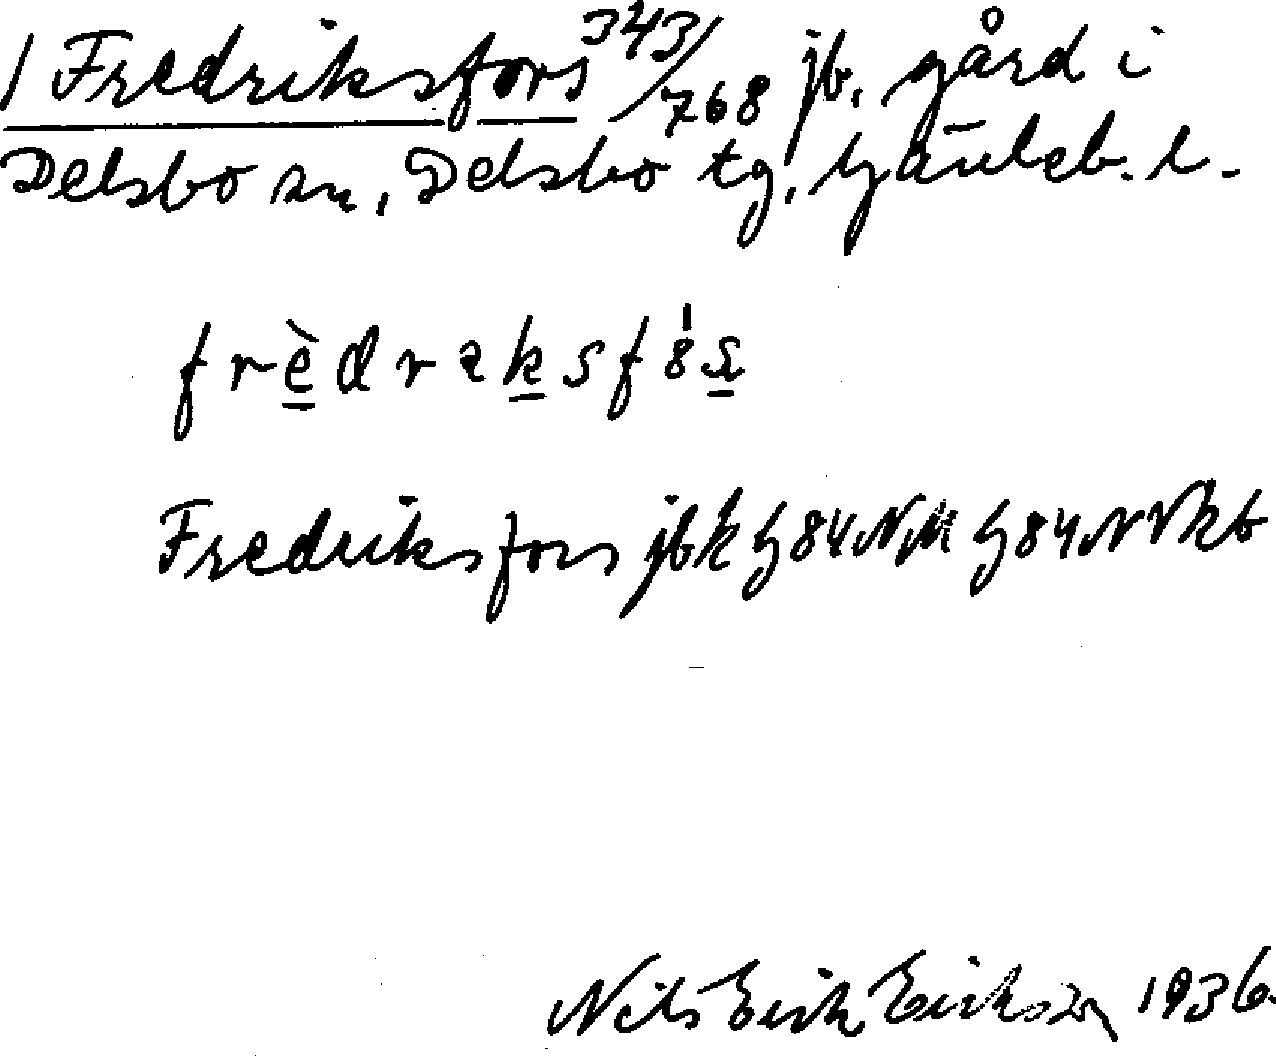 1 Fredriksfors 343/768 jb. gård i
Delsbo sn, Delsbo tg, Gävleb. l.
frèdrəksf8s
Fredriksfors jbk G84NM G84NVkb
Nils Erik Eriksson 1936.